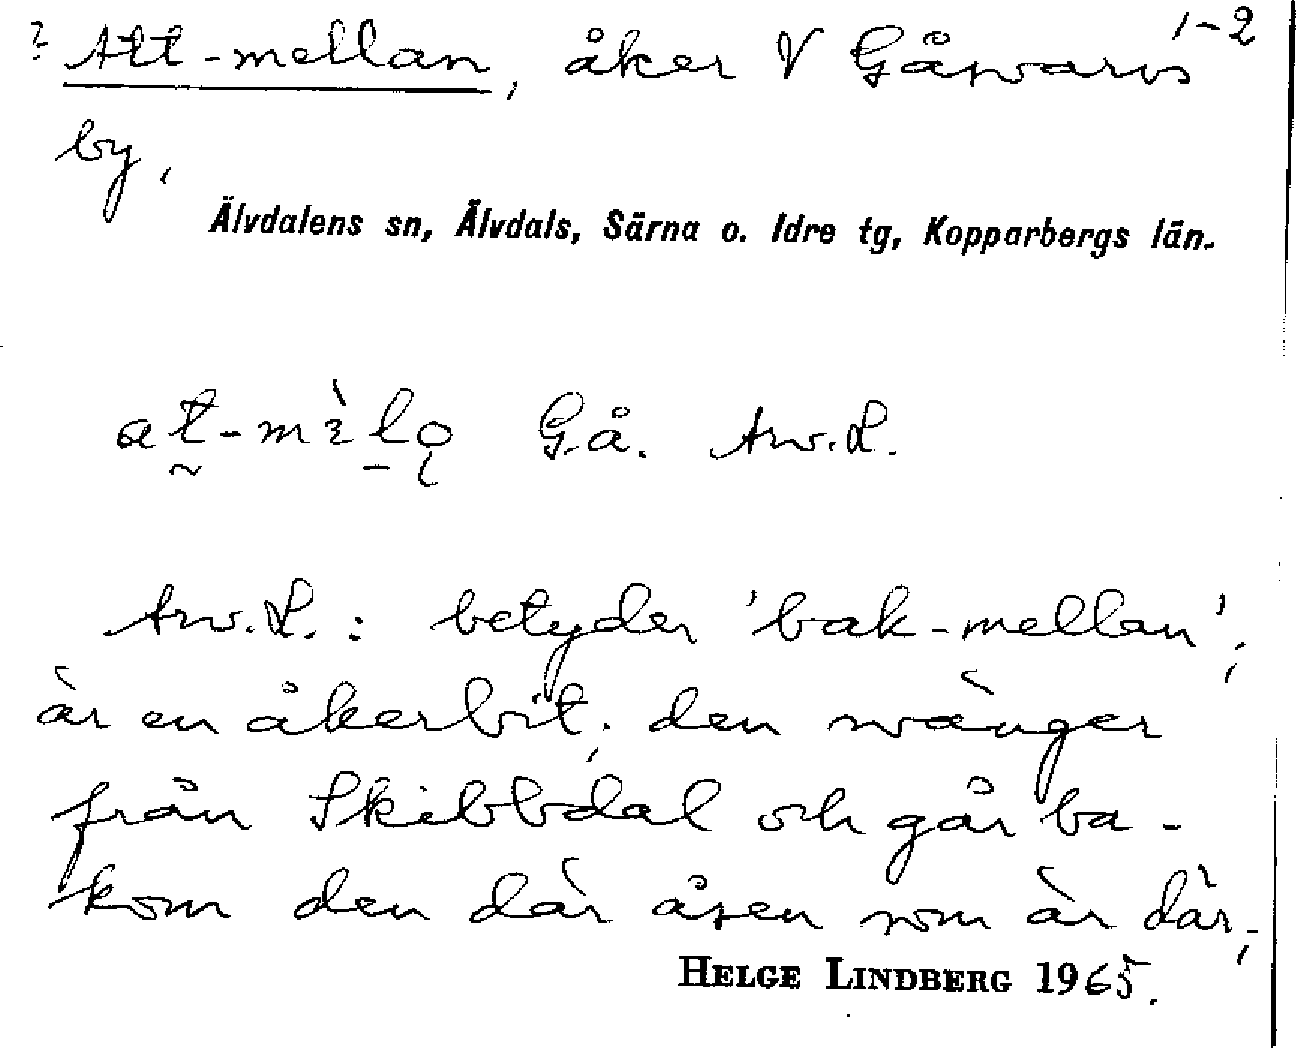 1-2
? Att-mellan, åker V Gåsvarvs
by,
Älvdalens sn, Älvdals, Särna o. Idre tg, Kopparbergs län.
Gå. Aw.L.
Aw.L.: betyder 'bak-mellan';
är en åkerbit; den svänger
från Skibbdal och går ba-
kom den där åsen som är där;
HELGE LINDBERG 1965.